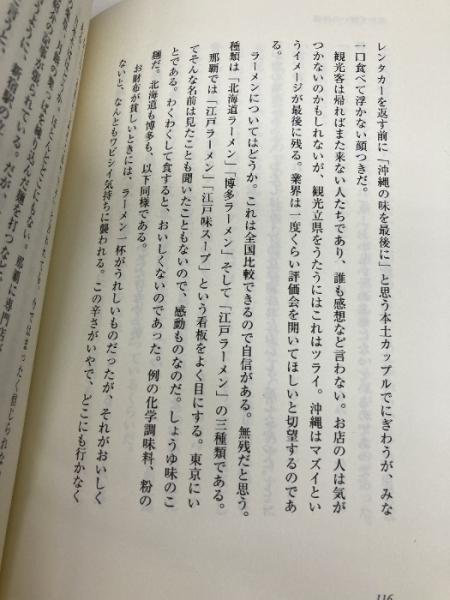 レンタカーを返す前に「沖縄の味を最後に」と思う本土カップルでにぎわうが、みな
一口食べて浮かない顔つきだ。
「観光客は帰ればまた来ない人たちであり、誰も感想など言わない。お店の人は気が
つかないのかもしれないが、観光立県をうたうにはこれはツライ。沖縄はマズイとい
うイメージが最後に残る。業界は一度くらい評価会を開いてほしいと切望するのであ
る。
ラーメンについてはどうか。これは全国比較できるので自信がある。無残だと思う。
種類は「北海道ラーメン」「博多ラーメン」そして「江戸ラーメン」の三種類である。
那覇では「江戸ラーメン」「江戸味スープ」という看板をよく目にする。東京にい
てそんな名前は見たことも聞いたこともないので、感動ものなのだ。しょうゆ味のこ
とである。わくわくして食すると、おいしくないのであった。例の化学調味料、粉の
麺だ。北海道も博多も、以下同様である。
お財布が貧しいときには、ラーメン一杯がうれしいものだったが、それがおいしく
ないと、なんともワビシイ気持ちに襲われる。この辛さがいやで、どこにも行かなく
116